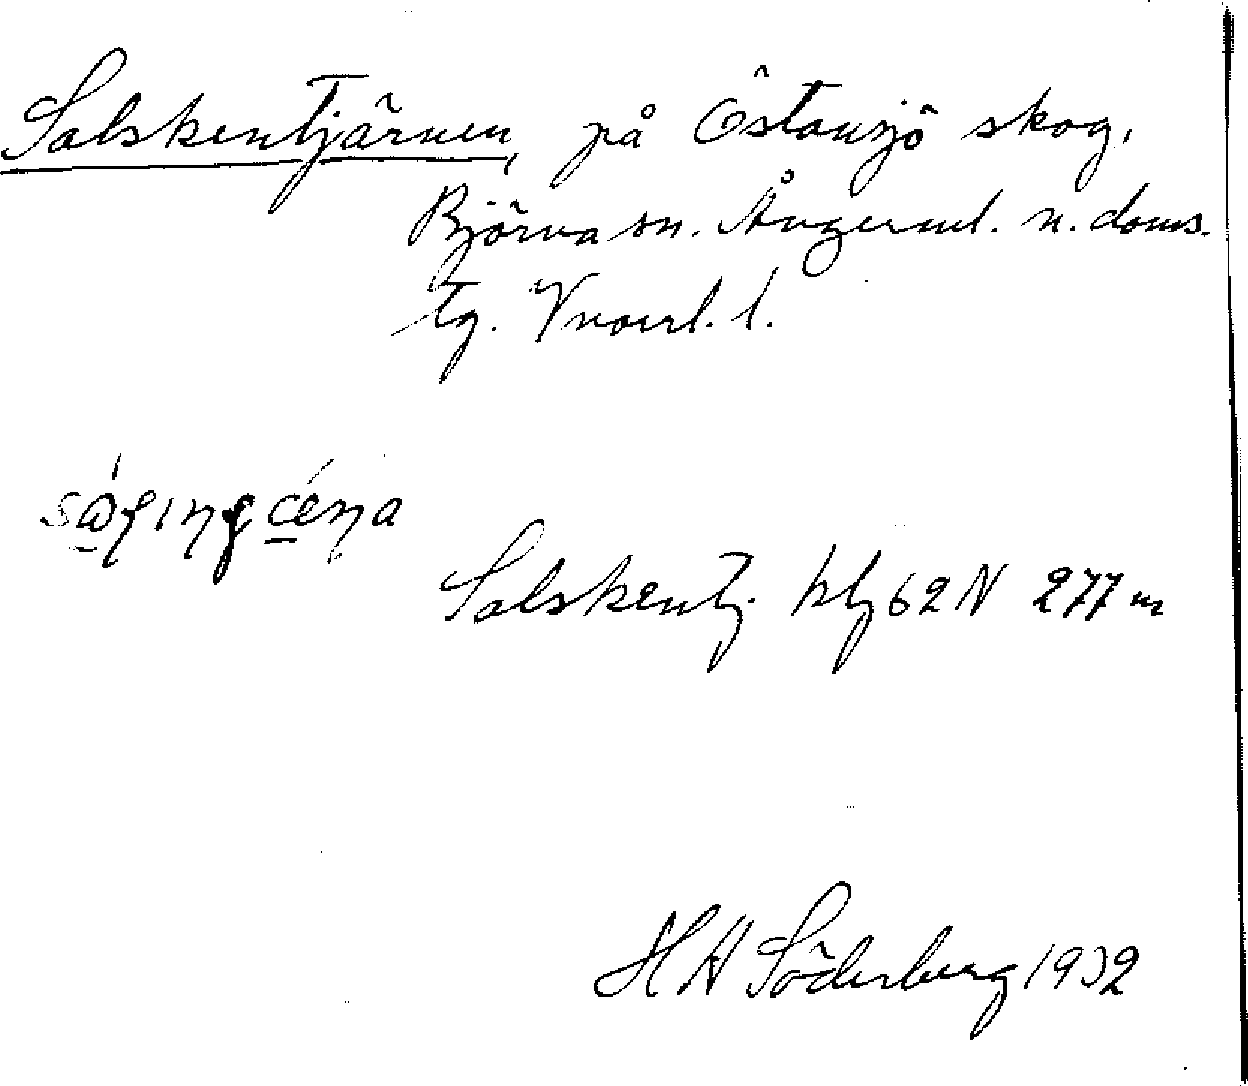 Salskentjärnen, på Östansjö skog,
Björna sn. Ångerml. n. doms.
tg. Vnorrl. l.
Salskentj. ktj 62 N 277 m
H H Söderberg 1932